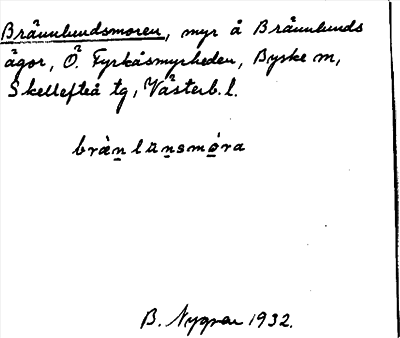 Brännlundsmoren, myr å Brännlunds
ägor, Ö. Fyrkåsmyrheden, Byske sn,
Skellefteå tg, Västerb. l.
brànlunsmóra
B. Nygren 1932.